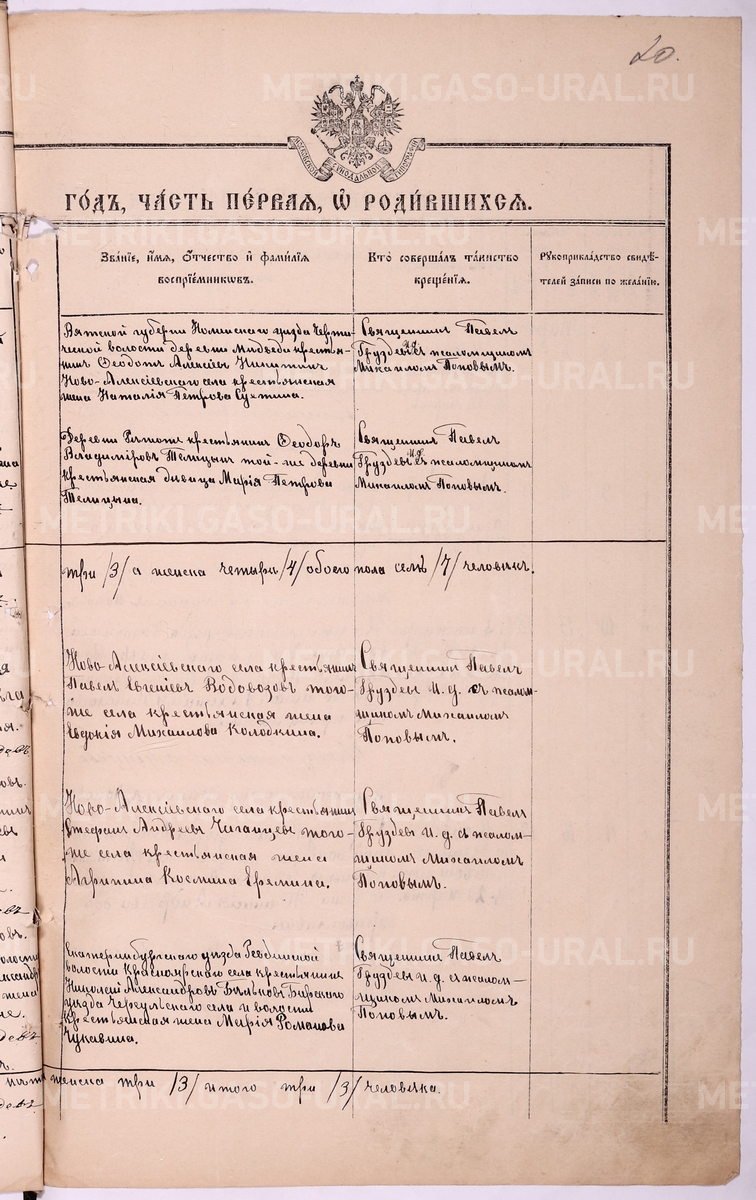 20.
МОСКОВСКОЙ СѴНОДАЛЬНОЙ ТИПОГРАФІИ
ГО́ДЪ, ЧА́СТЬ ПЕ́РВАЯ, Ѿ РОДИ́ВШИХСЯ.
Зва́нїе, и́мя, о́тчество и҆ фами́лїя
воспрїе́мниковъ.
Кто̀ соверша́лъ та́инство
креще́нїя.
Рукоприкла́дство свидѣ́-
телей за́писи по жела́нїю.
Вятской губерніи Нолинскаго уѣзда
ческой волости деревни крестья-
нинъ Ѳеодотъ Алексѣевъ Никитинъ
Ново-Алексѣевскаго села крестьянская
жена Наталія Петрова Суетина.
Священникъ Павелъ
Груздевъ и. д. псаломщикомъ
Михаиломъ Поповымъ.
Деревни крестьянинъ Ѳеодоръ
Владиміровъ Телицынъ той-же деревни
крестьянская дѣвица Марія Петрова
Телицына.
Священникъ Павелъ
Груздевъ и. д. псаломщикомъ
Михаиломъ Поповымъ.
три /3/ а женска четыре /4/ обоего пола семь /7/ человѣкъ.
Ново-Алексѣевскаго села крестьянинъ
Павелъ Евгеніевъ Водовозовъ того-
же села крестьянская жена
Евдокія Михаилова Колобкина.
Священникъ Павелъ
Груздевъ и. д. псалом-
щикомъ Михаиломъ
Поповымъ.
Ново-Алексѣевскаго села крестьянинъ
Стефанъ Андреевъ Чиганцевъ того-
же села крестьянская жена
Агрипина Космина Еремина.
Священникъ Павелъ
Груздевъ и. д. псалом-
щикомъ Михаиломъ
Поповымъ.
Екатеринбургскаго уѣзда Ревдинской
волости Краснояркаго села крестьянинъ
Николай Александровъ Бѣльковъ Бирскаго
уѣзда села и волости
крестьянская жена Марія Романова
Чукавина.
Священникъ Павелъ
Груздевъ и. д. псалом-
щикомъ Михаиломъ
Поповымъ.
женска три /3/ итого три /3/ человѣка.
METRIKI.GASO-URAL.RU